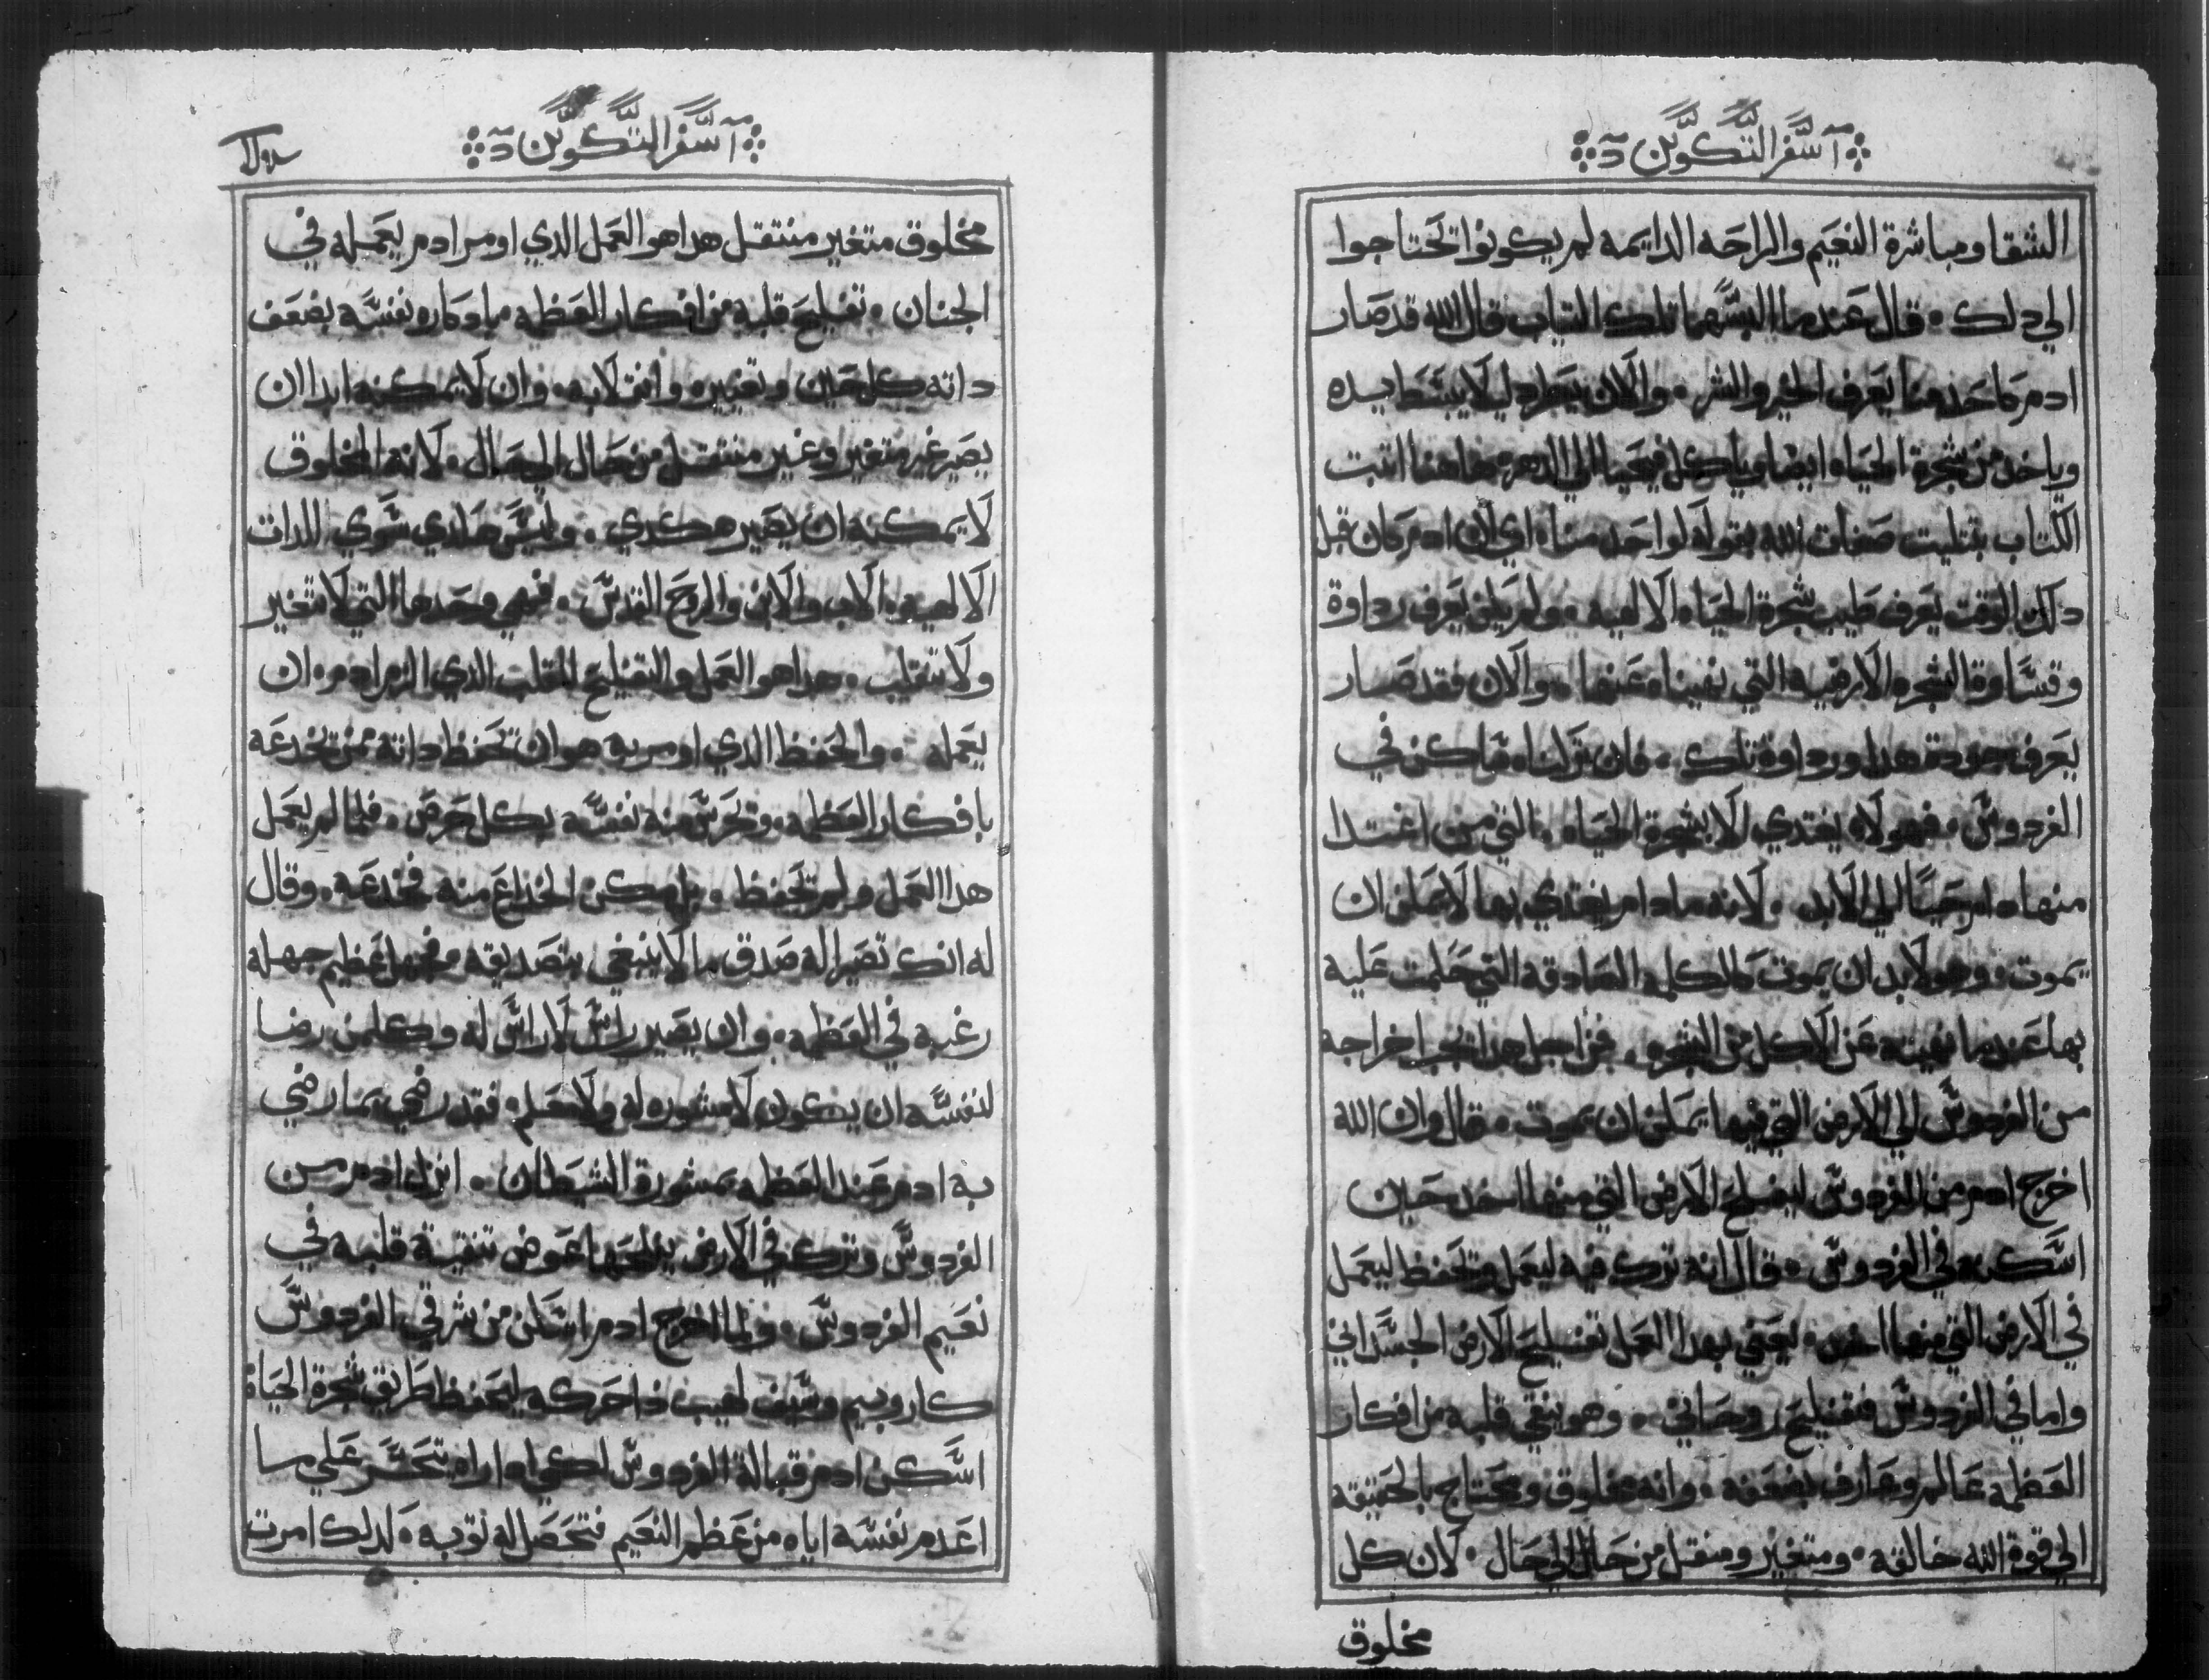 سفر التكوين
الشقا ومباشرة النعيم والراحه الدايمه لم يكونوا تحتاجوا
الي دلك ٠ قال عندما البسهما تلك التياب قال الله قد صار
ادم كاحد منا يعرف الخير والشر ٠ والان يطرد ليلا يبسط يده
وياخد من شجرة الحياه ايضا وياكل فيحيا الي الدهر ٠ هاهنا اتبت
الكتاب بتتليت صفات الله بقوله لواحد منا ٠ اي ان ادم كان قبل
دلك الوقت يعرف طيب شجرة الحياه الالهيه ٠ ولم يكن يعرف رداوة
وقساوة الشجره الارضيه التي نهيناه عنها ٠ والان فقد صار
يعرف جودة هدا ورداوة تلك ٠ فان تركناه ساكن في
الفردوس ٠ فهو لا يغتدي الا بشجرة الحياه ٠ التي من اغتدا
منها ٠ لم يحيا الي الابد ٠ لانه مادام يغتدي بها لا يمكن ان
يموت ٠ وهو لابد ان يموت كالكلمه الصادقه التي حكمت عليه
بها عندما نهيته عن الاكل من الشجره ٠ فمن اجل هدا يجب اخراجه
من الفردوس الي الارض التي فيها يمكن ان يموت ٠ قال وان الله
اخرج ادم من الفردوس ليفلح الارض التي منها اخد حين
اسكنه في الفردوس ٠ قال انه تركه فيه ليعمل وتحفظ ليعمل
في الارض التي منها اخد ٠ يعني بهدا العمل تفليح الارض الجسداني
واما في الفردوس فتفليح روحاني ٠ وهو ينقي قلبه من افكار
العظمه عالم وعارف بضعفه ٠ وانه مخلوق ومحتاج بالحقيقه
الي قوة الله خالقه ٠ ومتغير ومنتقل من حال الي حال ٠ لان كل
مخلوق
سفر التكوين
مخلوق متغير منتقل هدا هو العمل الدي اومر ادم يعمله في
الجنان ٠ تفليح قلبه من افكار العظمه نفسه بضعف
داته كل حين وتغييره وانقلابه ٠ وان لا يمكنه ابدا ان
يصير غير متغير وغير منتقل من حال الي حال ٠ لانه المخلوق
لا يمكنه ان يصير هكدي ٠ وليس هادي سوي للدات
الالهيه ٠ الاب والابن والروح القدس ٠ فهي وحدها التي لا تتغير
ولا تنقلب ٠ هدا هو العمل والتفليح القلب الدي الزم ادم ٠ ان
يعمله ٠ والحفظ الدي اومر به هو ان تحفظ داته ممن تخدعه
بافكار العظمه ٠ وتحرس منه نفسه بكل حرص ٠ فلما لم يعمل
هدا العمل ولم تحفظ ٠ بل مكن الخداع منه فخدعه ٠ وقال
له انك تصير اله صدق ما لا ينبغي بتصديقه عظيم جهله
رغبه في العظمه ٠ وان يصير راس لا راس له وكلمن رضا
لنفسه ان يكون لا مشوره له ولا معلم ٠ فقد رضي بما رضي
به ادم عند العظمه بمشورة الشيطان ٠ انزل ادم من
الفردوس وترك في الارض يفلحها عوض تنقية قلبه في
نعيم الفردوس ٠ ولما اخرج ادم اسكن من شرقي الفردوس
كاروبيم وسيف لهيب دا حركه ليحفظ طريق شجرة الحياة
اسكن ادم قبالة الفردوس لكي ادا راه تتحسر علي ما
اعدم نفسه اياه من عظم النعيم فتحصل له توبه ٠ لدلك امرت